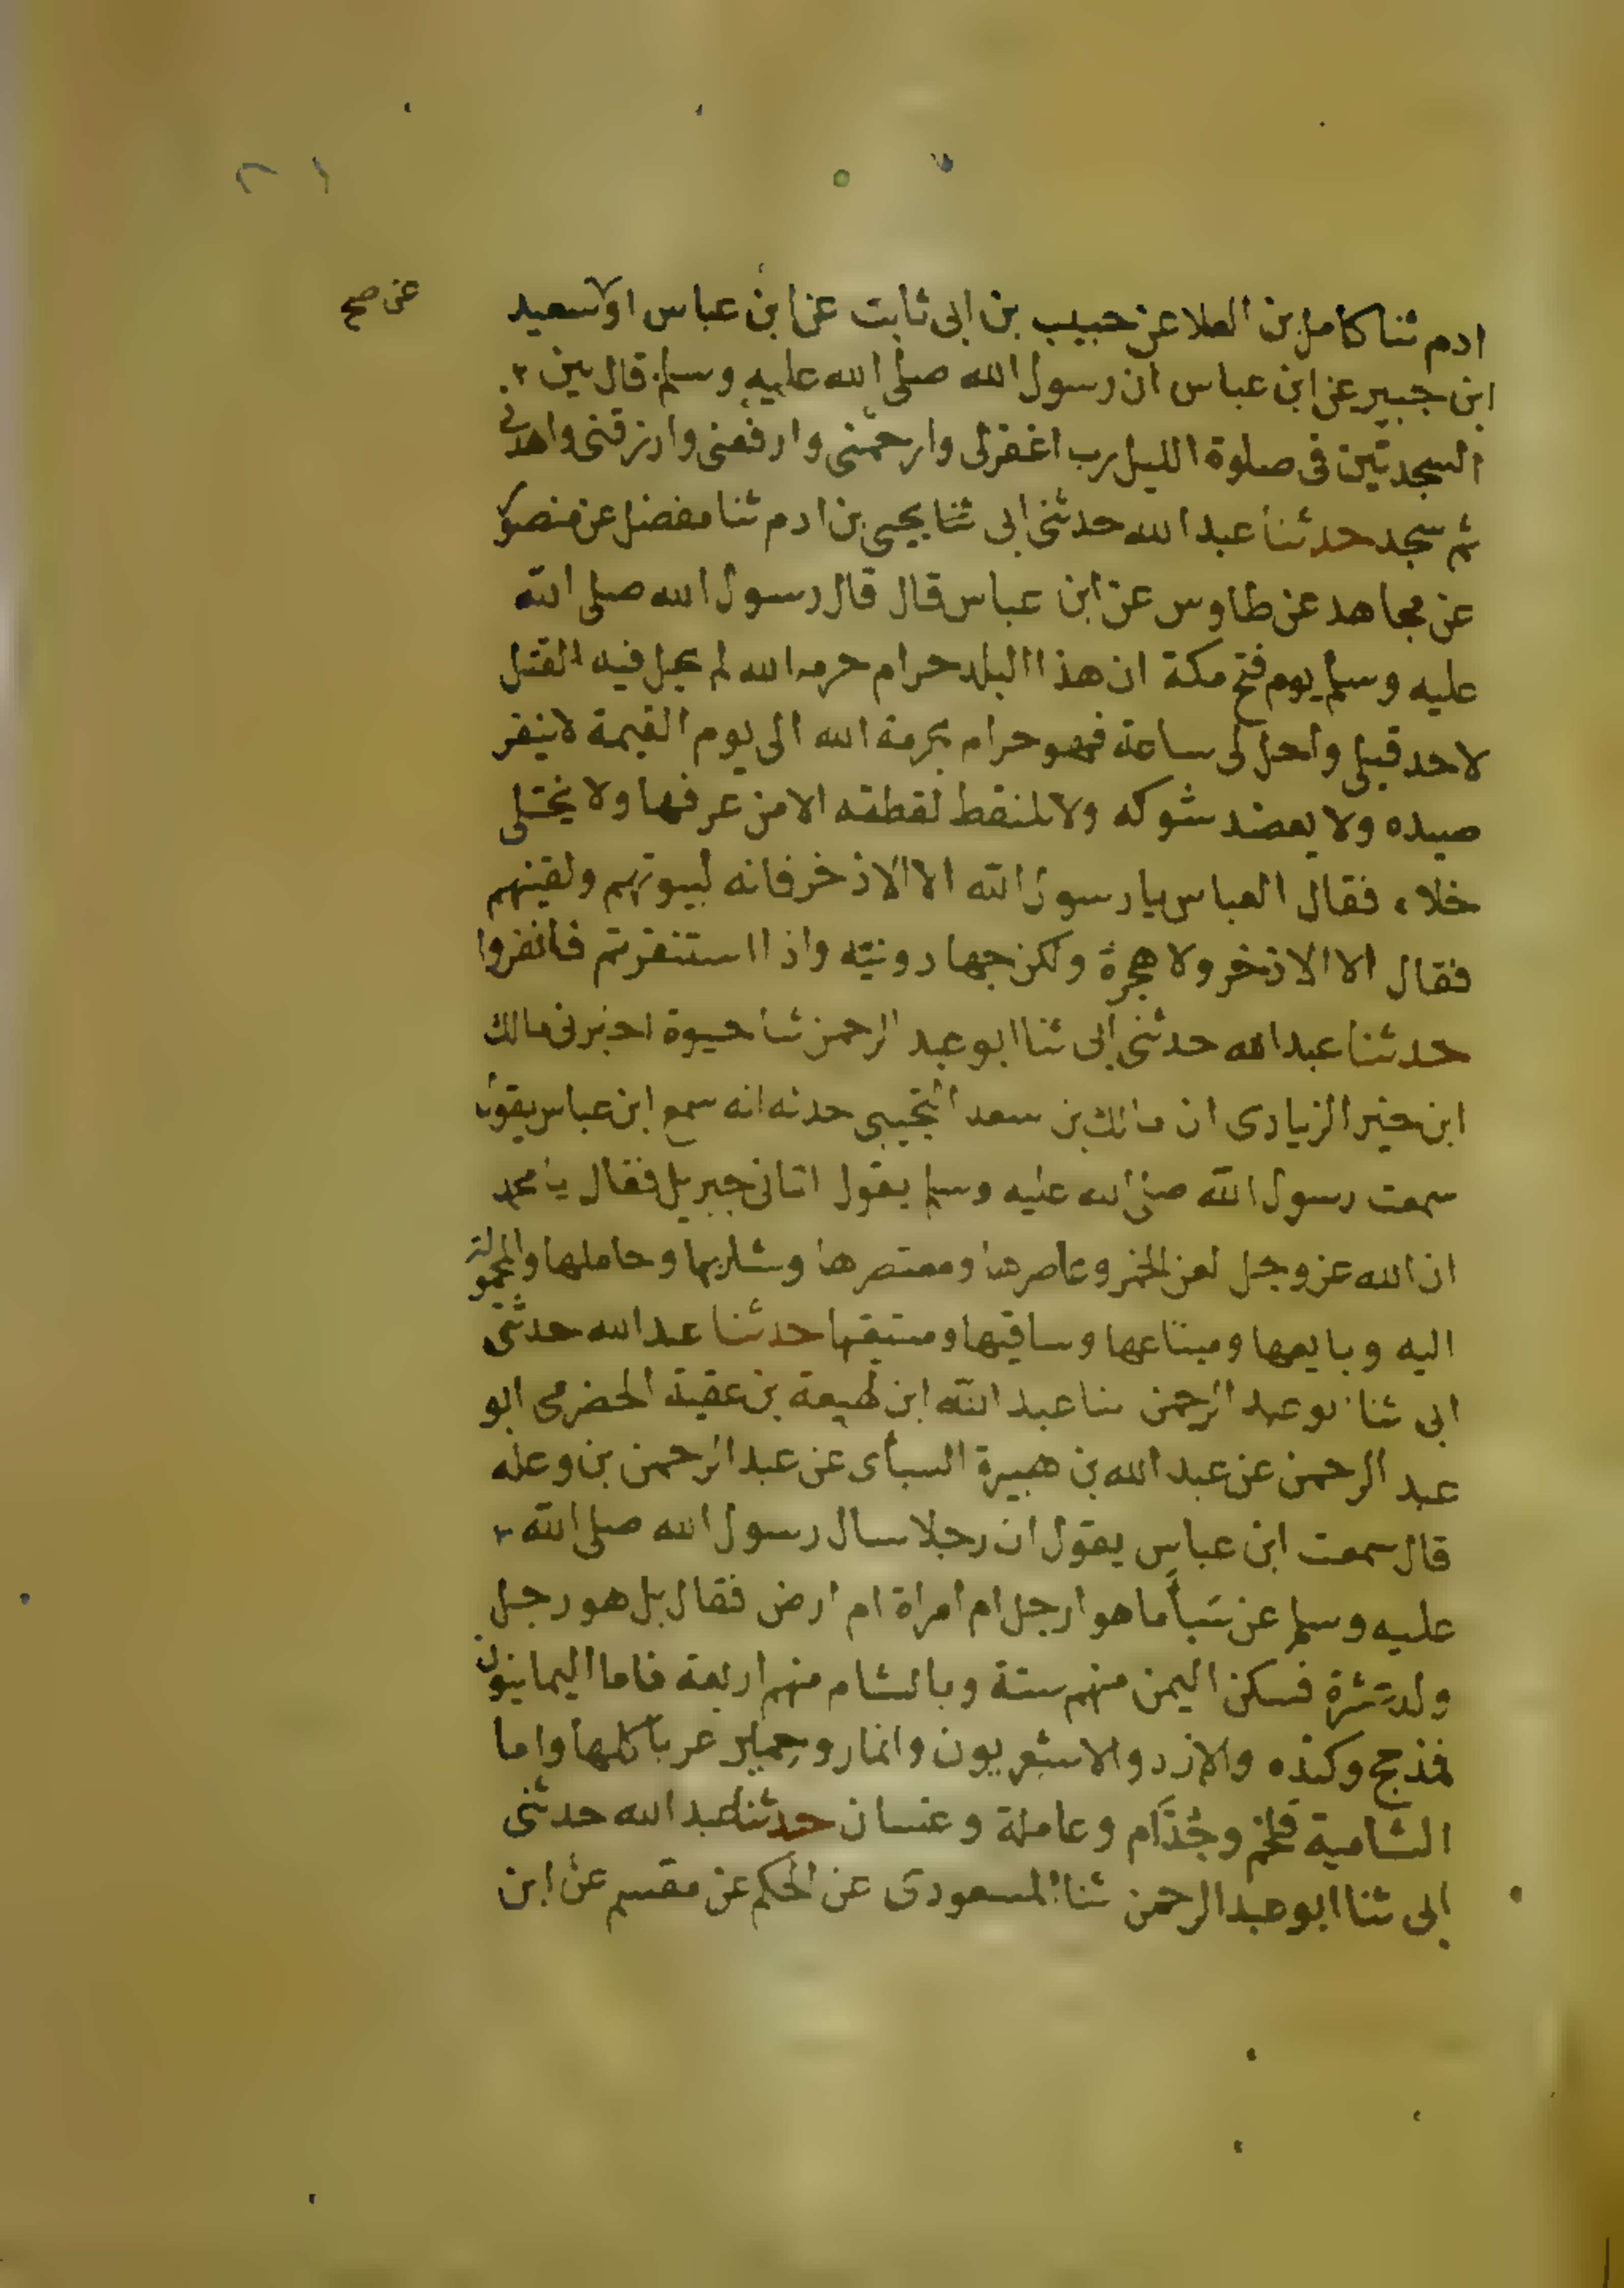 ادم ثنا كامل بن العلا عن حبيب بن ابى ثابت عن ابن عباس او سعيد
عن صح
ابن جبير عن ابن عباس ان رسول الله صلى الله عليه وسلم قال بين
السجدتين فى صلوة الليل رب اغفرلى وارحمنى وارفعنى وارزقنى واهدنى
ثم سجد حدثنا عبد الله حدثنى ابى ثنا يحيى بن ادم ثنا مفضل عن منصور
عن مجاهد عن طاوس عن ابن عباس قال قال رسول الله صلى الله
عليه وسلم يوم فتح مكة ان هذا البلد حرام حرمه الله لم يحل فيه القتل
لاحد قبلى واحل لى ساعة فهو حرام بحرمة الله الى يوم القيمة لا ينفر
صيده ولا يعضد شوكه ولا يلتقط لقطته الا من عرفها ولا يختلى
خلاه فقال العباس يا رسول الله الا الاذخر فانه لبيوتهم ولقينهم
فقال الا الاذخر ولا هجرة ولكن جهاد ونية واذا استنفرتم فانفروا
حدثنا عبد الله حدثنى ابى ثنا ابو عبد الرحمن ثنا حيوة اخبرنى مالك
ابن خير الزيادى ان مالك بن سعد التجيبى حدثه انه سمع ابن عباس يقول
سمعت رسول الله صلى الله عليه وسلم يقول اتانى جبريل فقال يا محمد
ان الله عز وجل لعن الخمر وعاصرها ومعتصرها وشاربها وحاملها والمحمولة
اليه وبايعها ومبتاعها وساقيها ومستقيها حدثنا عبد الله حدثنى
ابى ثنا ابو عبد الرحمن ثنا عبد الله ابن لهيعة بن عقبة الحضرمى ابو
عبد الرحمن عن عبد الله بن هبيرة السبأى عن عبد الرحمن بن وعله
قال سمعت ابن عباس يقول ان رجلا سال رسول الله صلى الله
عليه وسلم عن سبأ ما هو ارجل ام امراة ام ارض فقال بل هو رجل
ولد عشرة فسكن اليمن منهم ستة وبالشام منهم اربعة فاما اليمانيون
فمذجح وكنده والازد والاشعريون وانمار وحمير عربا كلها واما
الشامية فلخم وجُذَام وعاملة وغسان حدثنا عبد الله حدثنى
ابى ثنا ابو عبد الرحمن ثنا المسعودى عن الحكم عن مقسم عن ابن